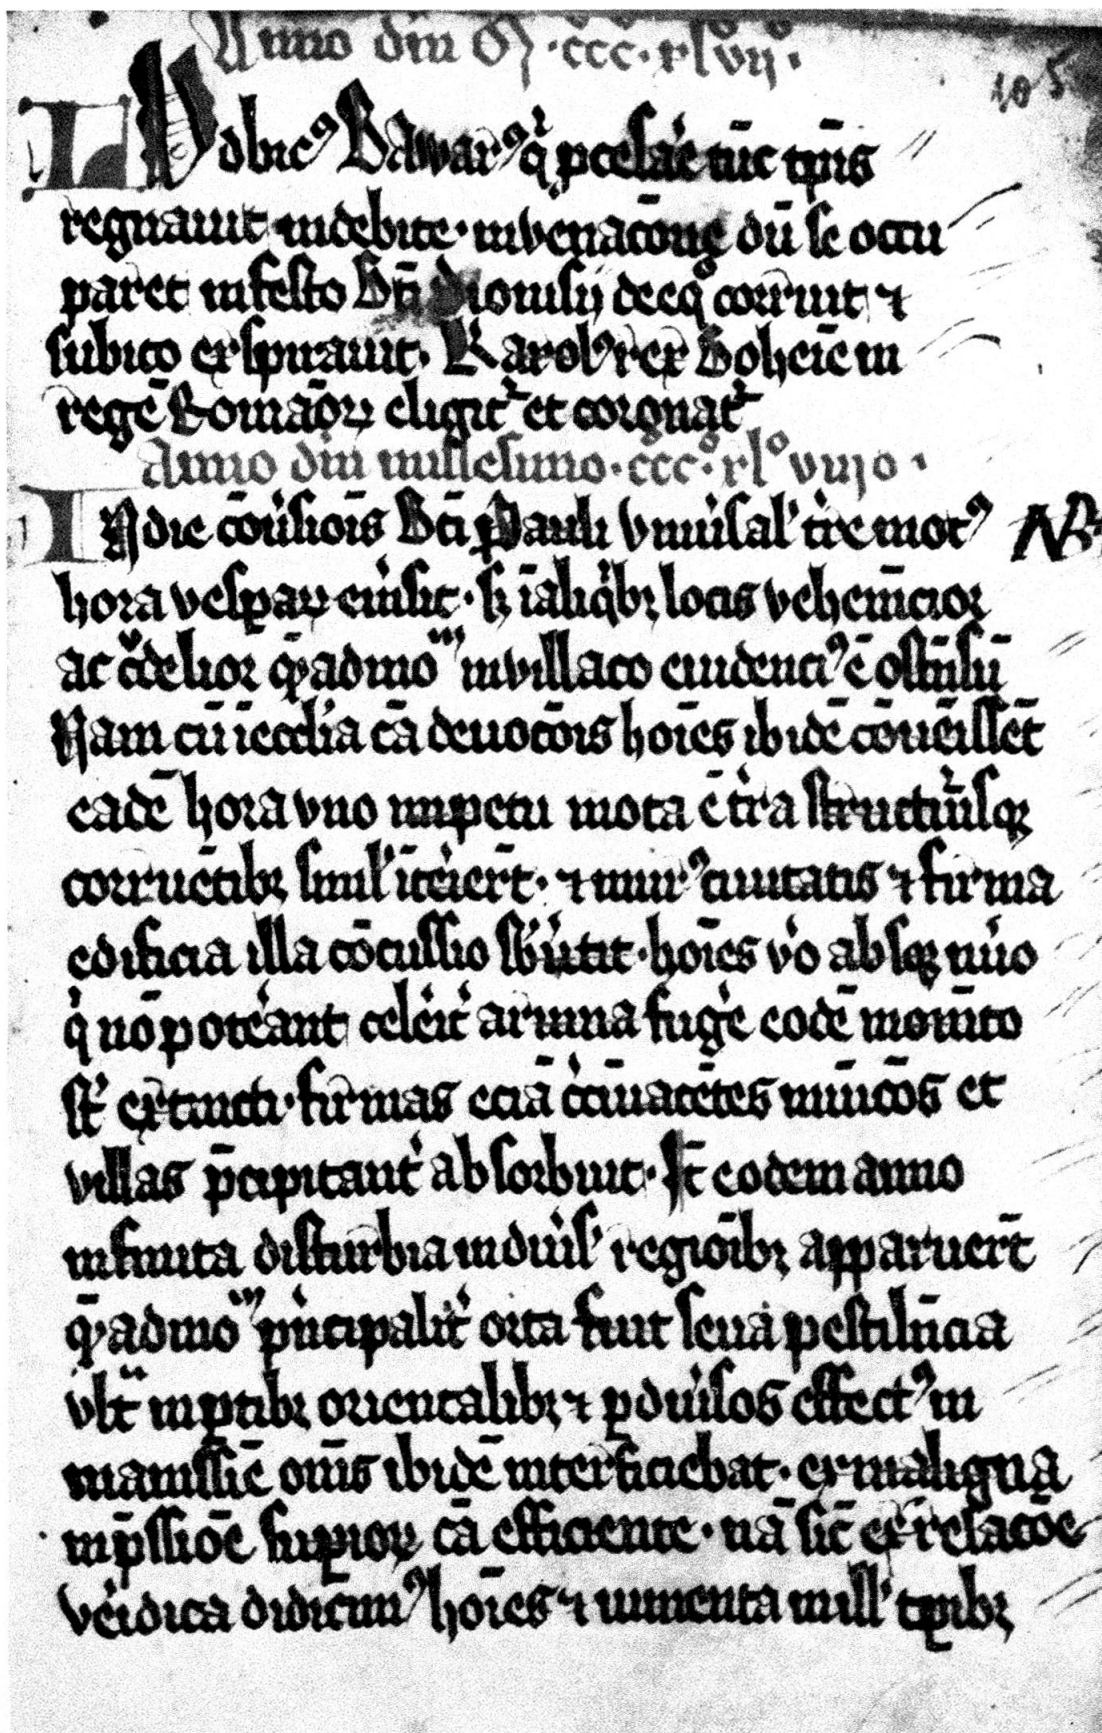 Anno dni M·ccc·xlvii·
105
LVdbicꝰ Bawarꝰ q̇ pcelar̓ tūc tp̄is
regnauit indebite· in venac̄one dū se occu
paret in festo Bt̄i dionisij de eqͦ corruit ⁊
subito exspirauit· Karolꝰ rex Boheīe in
regē Romāoꝝ eligit᷑ et coronat᷑
Anno dni millesimo·cccͦ·xlͦ viijo·
IN die cōu̓siois Bt̄i Pauli vniu̓sal̓ t̓re motꝰ
NB·
hora vesꝑaꝝ eu̓sit· sꝫ ī aliq̇bꝫ locis vehem̄cior
ac c̓delior q̄ admoͫ in villaco euidenciꝰ ē ostn̄sū
Nam cū ī eccl̓ia cā deuoc̄ois hoīes ibidē cōuēissēt
eadē hora vno impetu mota ē t̓ra structu̓isqꝫ
corruētibꝫ siml̓ īt̓ier̄t· ⁊ murꝰ ciuitatis ⁊ firma
edificia illa cōcussio sb̓u̓tit· hoīes v̓o absqꝫ nu̓o
q̇ nō pot̓ant celerit̓ a ruina fug̓e eodē momīto
st̄ extincti· firmas eciā c̓cūiacētes mūic̄os et
villas p̄cipitant̓ absorbuit· It̄ eodem anno
infinita disturbia in diu̓s̓ regioībꝫ apparuer̄t
q̄ admoͫ pn̓cipalit̓ orta fuit seua pestiln̄cia
vlt̄ in ꝑtibꝫ orientalibꝫ ⁊ ꝑ diu̓sos effectꝰ in
maniss̄īe om̄s ibidē interficiebat· ex maligna
imp̄ssiōe suꝑioꝝ cā efficiente· nā sic̄ ex relac̄oe
ve̓idica didicimꝰ hoīes ⁊ iumenta mill̓ tꝑibꝫ